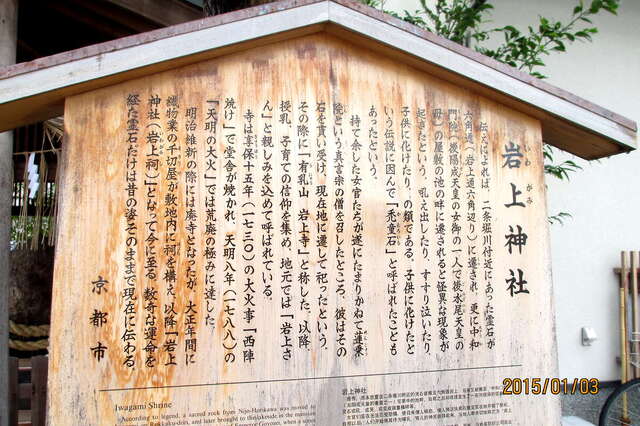 岩上神社
いわ がみ
伝えによれば、二条堀川付近にあった霊石が
六角通（岩上通六角辺り）に遷され、更に中和
門院（後陽成天皇の女御の一人で後水尾天皇の
母）の屋敷の池の畔に遷されると怪異な現象が
起きたという。吼え出したり、すすり泣いたり、
子供に化けたり、の類である。子供に化けたと
いう伝説に因んで「禿童石」と呼ばれたことも
あったという。
持て余した女官たちが遂にたまりかねて蓮乗
院という真言宗の僧を召したところ、彼はその
石を貰い受け、現在地に遷して祀ったという。
その際に「有乳山 岩上寺」と称した。以降、
授乳、子育ての信仰を集め、地元では「岩上さ
ん」と親しみを込めて呼ばれている。
寺は享保十五年（一七三〇）の大火事「西陣
焼け」で堂舎が焼かれ、天明八年（一七八八）の
「天明の大火」では荒廃の極みに達した。
明治維新の際には廃寺となったが、大正年間に
織物業の千切屋が敷地内に祠を構え、以降「岩上
神社（岩上祠）」となって今に至る。数奇な運命を
経た霊石だけは昔の姿そのままで現在に伝わる。
京都市
Iwagami Shrine
According to legend, a sacred rock from Nijo-Horikawa was moved to
岩上神社
2015/01/03